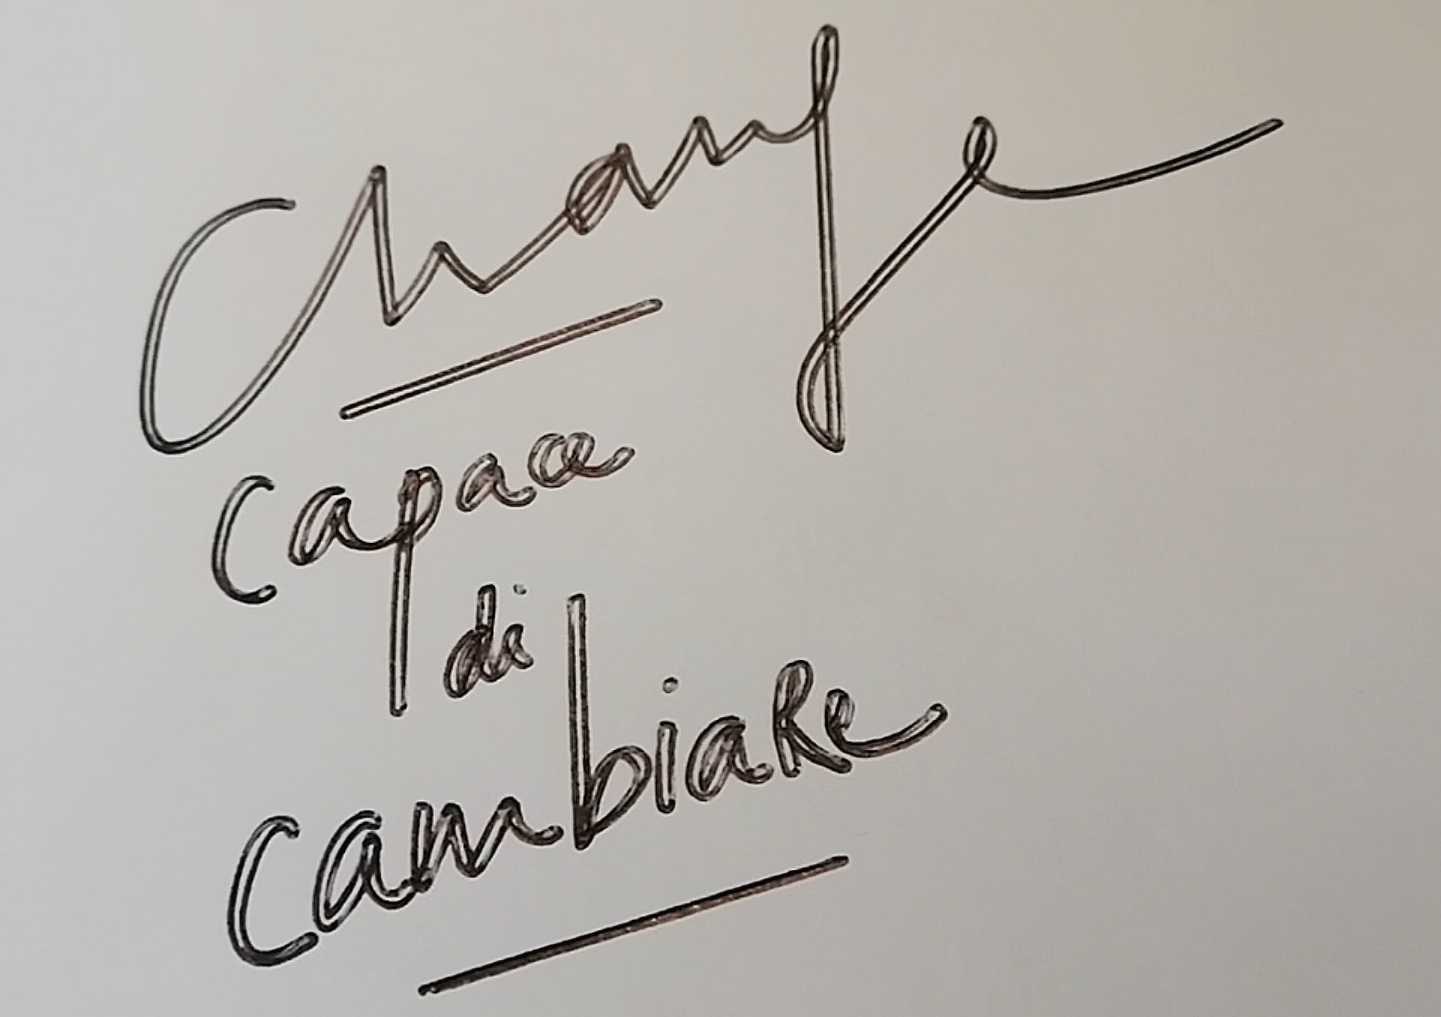 Change
capace
di
cambiaRe